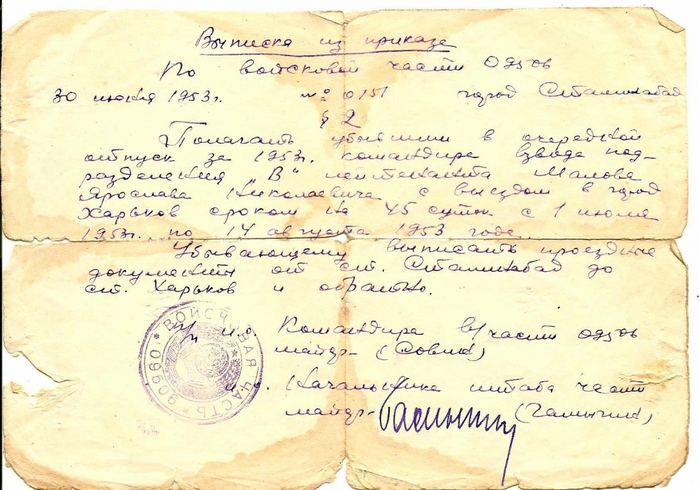 Выписка из приказа
По войсковой части 09506
30 июня 1953г. № 0151 город Сталинабад
§ 2
Полагать убывшим в очередной
отпуск за 1953г. командира взвода под-
разделения „В" лейтенанта Малова
Ярослава Николаевича с выездом в город
Харьков сроком на 45 суток с 1 июля
1953г. по 14 августа 1953 года.
Убывающему выписать проездные
документы от ст. Сталинабад до
ст. Харьков и обратно.
п/п и.о. Командира в/части 09506
майор - (Совик)
и.о. Начальника штаба части
майор - (Галыгин)
ВОЙСКОВАЯ ЧАСТЬ